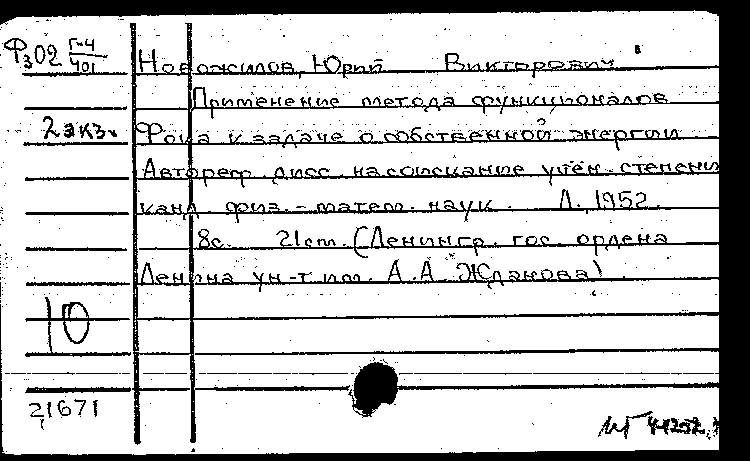 Ф302 Г-4/401
Новожилов, Юрий Викторович
Применение метода функционалов
2 экз.
Фока к задаче о собственной энергии
Автореф. дисс. на соискание учён. степени
канд. физ.-матем. наук. Л. 1952.
8с. 21см. (Ленингр. гос. ордена
Ленина ун-т им. А.А Жданова).
10
21671